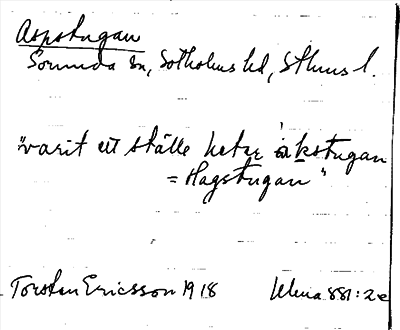 Aspstugan
Sorunda sn, Sotholms hd, Sthms l.
"varit ett ställe heter åkstugan
= Hagstugan"
Torsten Ericsson 1918 Ulma 881:2c